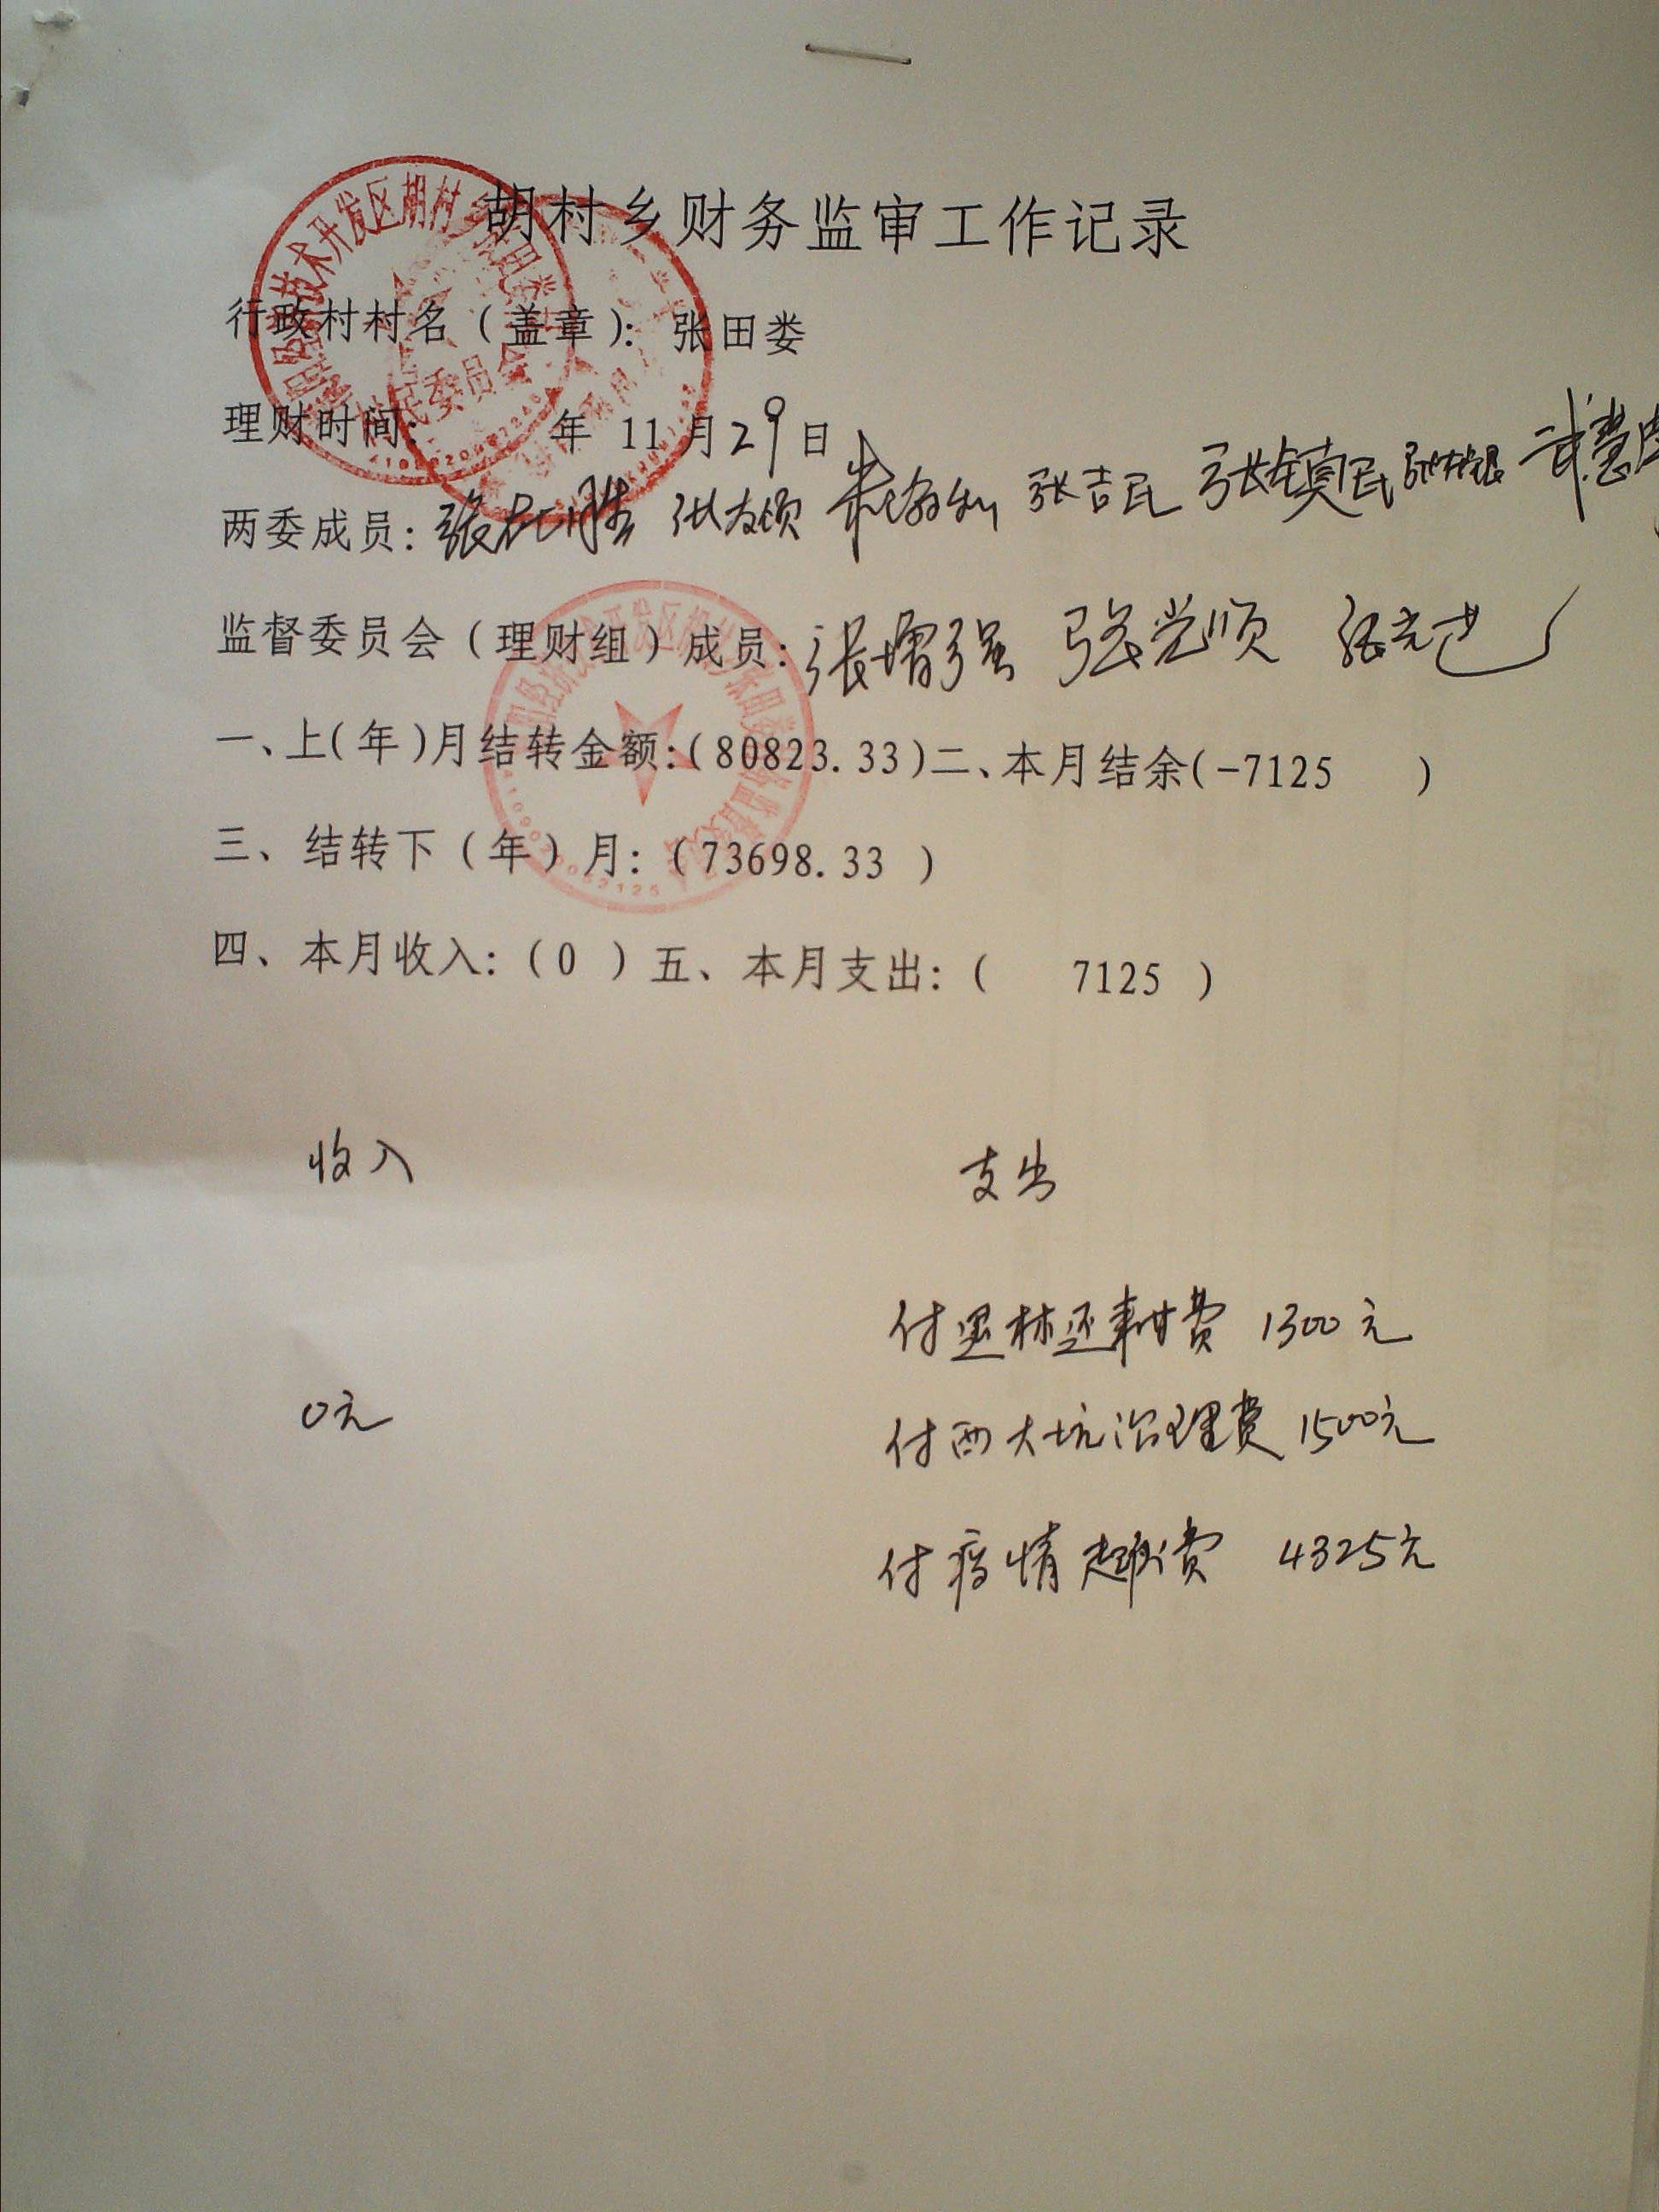 胡村乡财务监审工作记录
行政村村名（盖章）：张田娄
理财时间： 年 11 月29日
两委成员： 张吉民 张镇民
监督委员会（理财组）成员：张增强 张党顺
一、上(年)月结转金额：(80823.33)二、本月结余(-7125 )
三、结转下（年）月：（73698.33 ）
四、本月收入：（0 ）五、本月支出：（ 7125 ）
收入 支出
付 林还耕费 1300元
0元
付西大坑治理费 1500元
付疫情 费 4325元